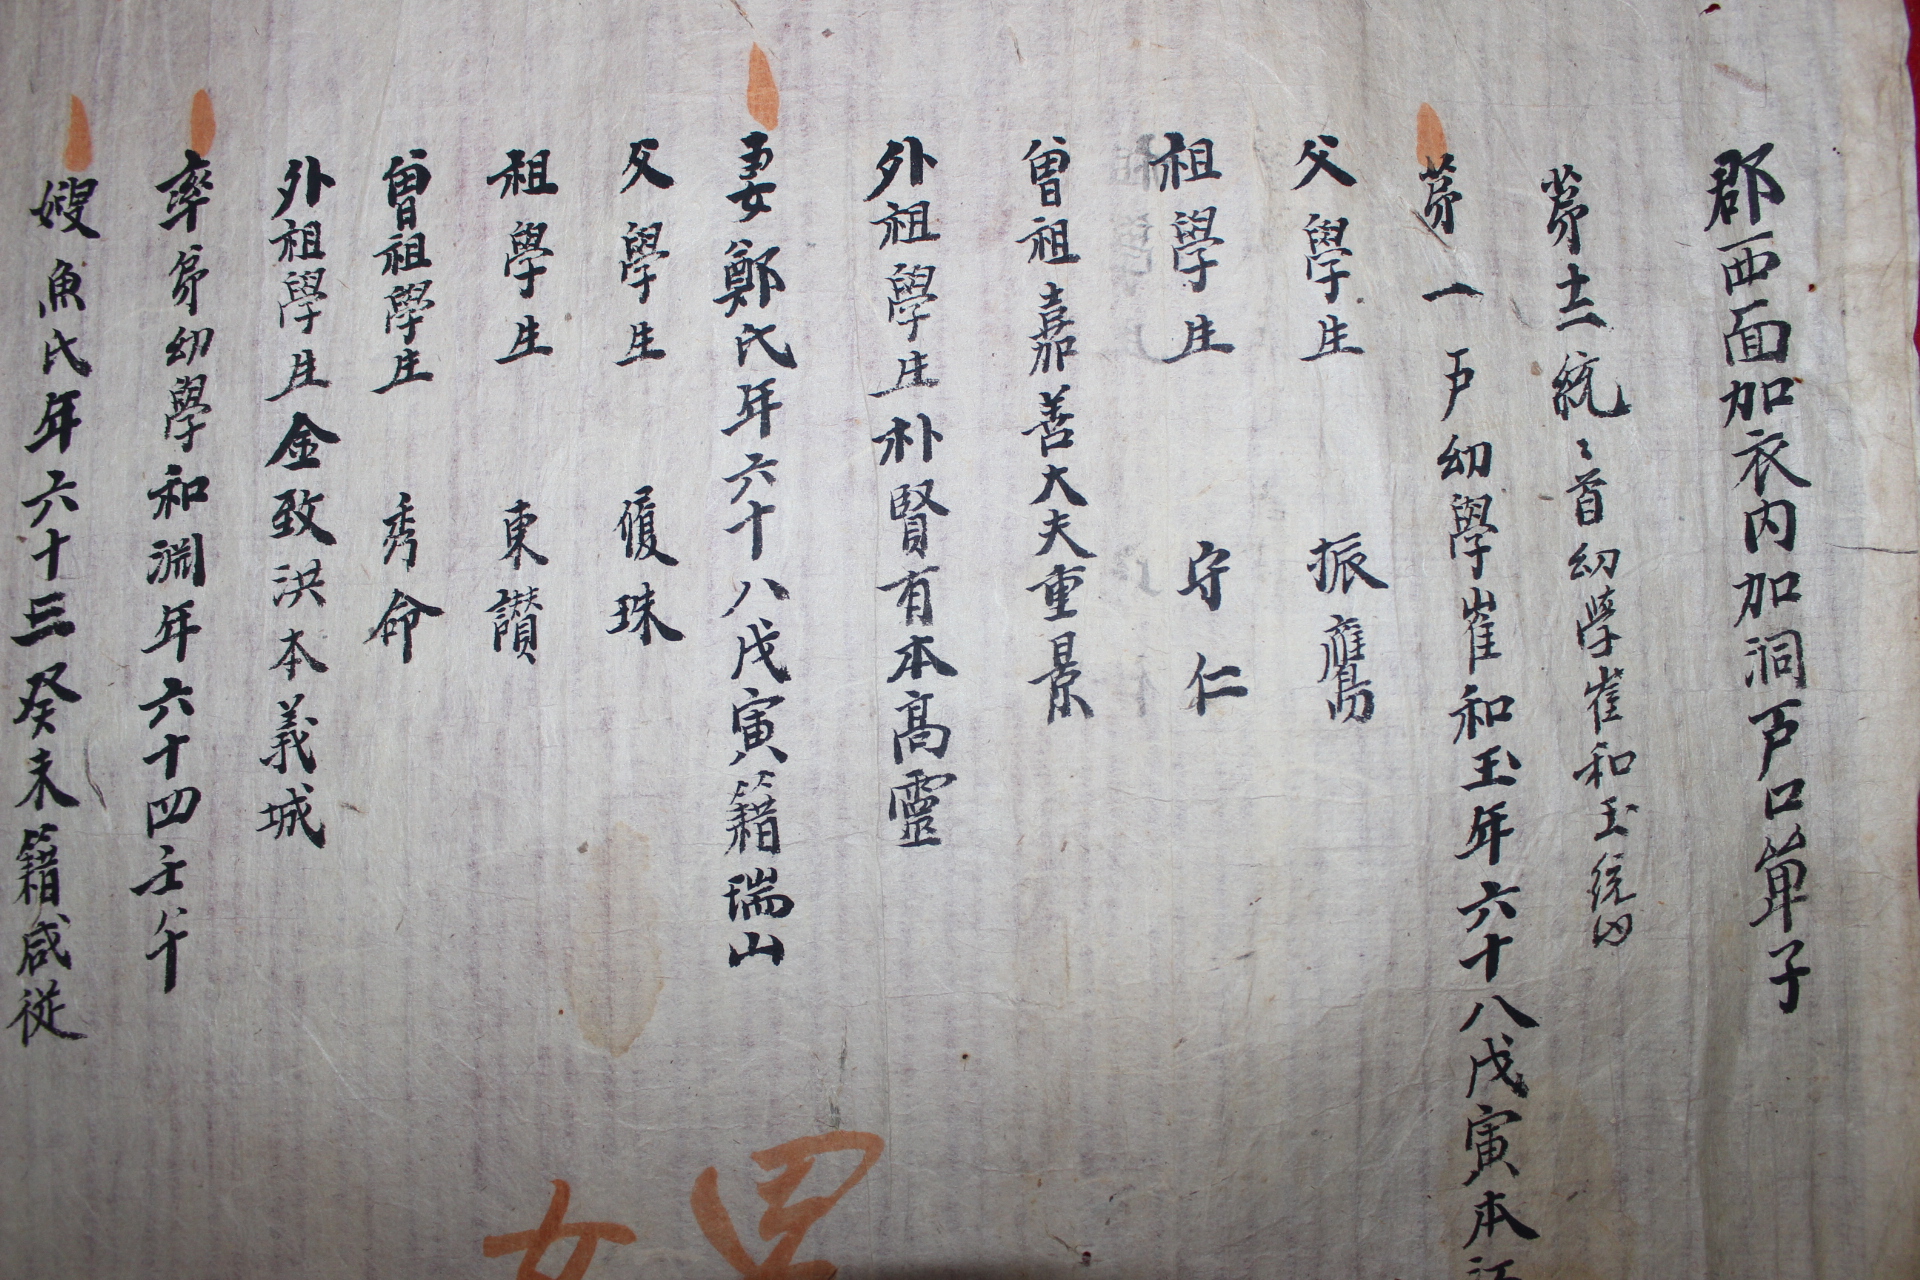 郡西面加衣內加洞戶口單子
苐十二統〻首幼學崔和玉統內
苐一戶幼學崔和玉年六十八戊寅本江
父學生 振鷹
祖學生 守仁
曾祖嘉善大夫重景
外祖學生朴賢有本高靈
妻鄭氏年六十八戊寅籍瑞山
父學生 履珠
祖學生 東讃
曾祖學生 秀命
外祖學生金致洪本義城
率弟幼學和淵年六十四壬午
嫂魚氏年六十三癸未籍咸從
男
女